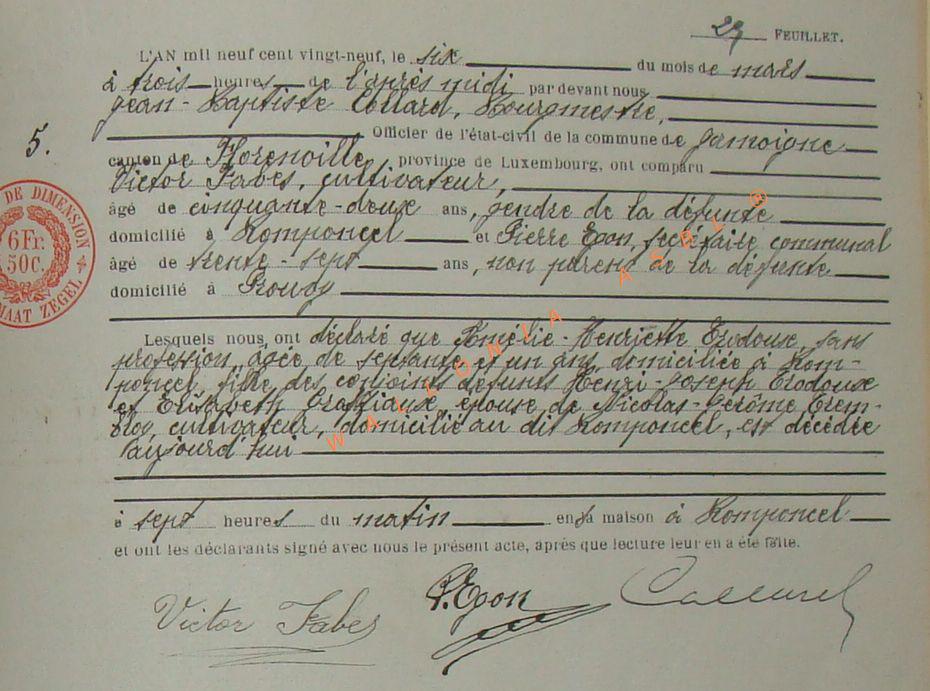 29 FEUILLET.
L'AN mil neuf cent vingt-neuf, le six du mois de mars
à trois heures de l'après midi par devant nous
Jean-Baptiste Collard, Bourgmestre,
Officier de l'état-civil de la commune de Jamoigne
5.
canton de Florenville, province de Luxembourg, ont comparu
Victor Fabes, cultivateur,
âgé de cinquante-deux ans, gendre de la défunte
domicilié à Romponcel et Pierre Epon, secrétaire communal
âgé de trente-sept ans, non parent de la défunte
domicilié à Prouvy
DE DIMENSION
6Fr.
50C.
MAAT ZEGEL
Lesquels nous ont déclaré que Amélie-Henriette Erodouse, sans
profession, agée de septante et un ans, domiciliée à Rom-
poncel, fille des conjoints défunts Henri-Joseph Erodouse
et Elisabeth épouse de Nicolas-Jérôme Trem-
bloy, cultivateur, domicilié au dit Romponcel, est décédée
aujourd'hui
à sept heures du matin en sa maison à Romponcel
et ont les déclarants signé avec nous le présent acte, après que lecture leur en a été faite.
Victor Fabes P. Epon Collard
WALLONIA ASBL ®